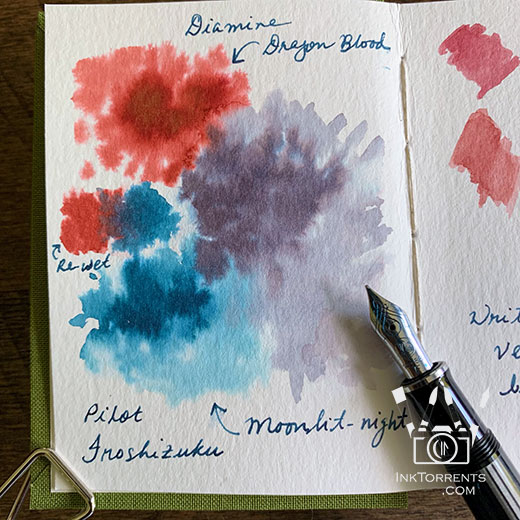 Diamine
Dragon Blood
Re-wet
Pilot
Iroshizuku
Moonlit-night
Writ
ve
INKTORRENTS
.COM